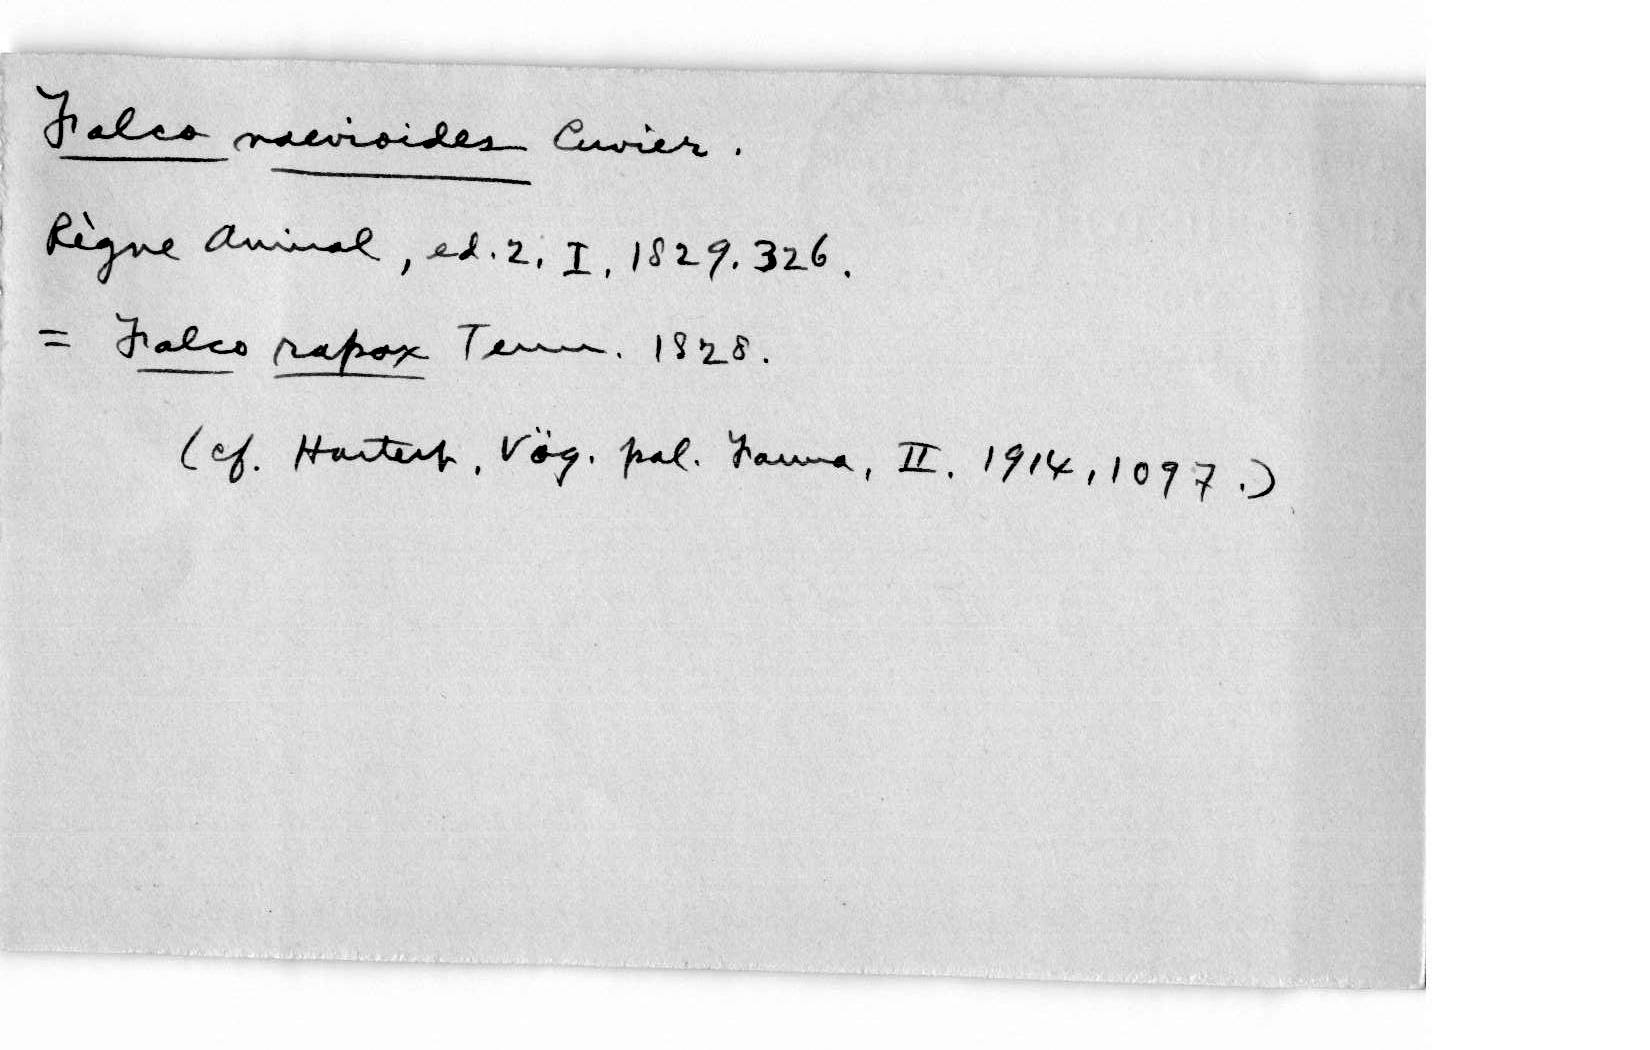 Falco naevioides Cuvier.
Règne Animal, ed. 2, I, 1829. 326.
= Falco rapax Temm. 1828.
(cf. Hartert, Vög. pal. Fauna, II. 1914, 1097.)